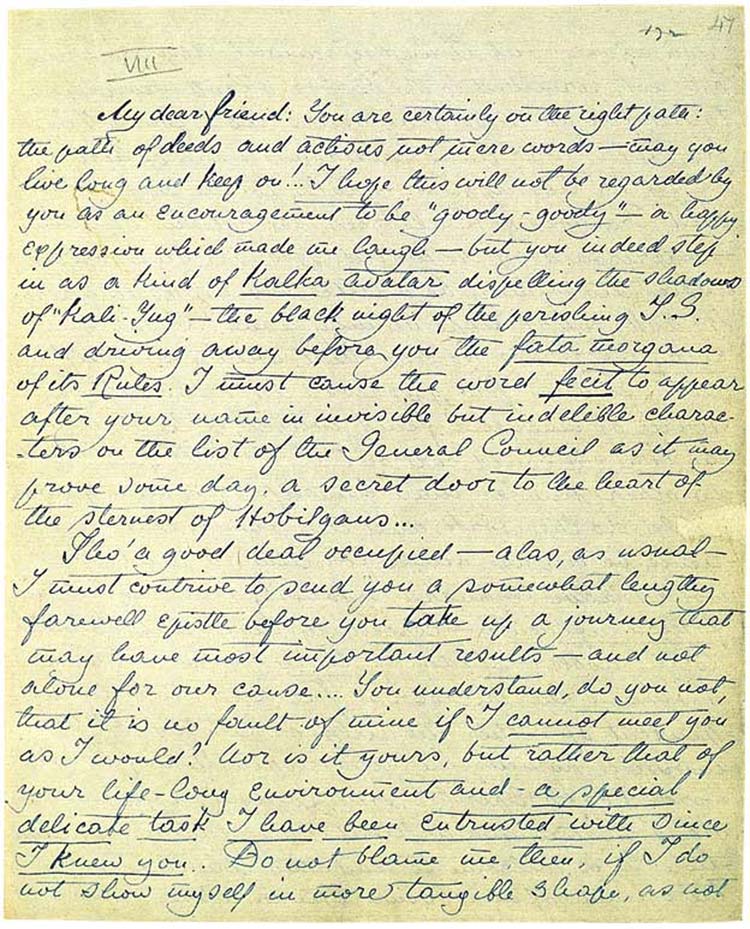 47
VIII
My dear friend: You are certainly on the right path:
the path of deeds and actions, not mere words — may you
live long and keep on!... I hope this will not be regarded by
you as an encouragement to be "goody-goody" — a happy
expression which made me laugh — but you indeed step
in as a kind of Kalka avatar dispelling the shadows
of "Kali-Yug" — the black night of the perishing T.S.
and driving away before you the fata morgana
of its Rules. I must cause the word fecit to appear
after your name in invisible but indelible charac-
-ters on the list of the General Council as it may
prove some day, a secret door to the heart of
the sternest of Hobilgans...
Tho' a good deal occupied — alas, as usual —
I must contrive to send you a somewhat lengthy
farewell epistle before you take up a journey that
may have most important results — and not
alone for our cause.... You understand, do you not,
that it is no fault of mine if I cannot meet you
as I would? Nor is it yours, but rather that of
your life-long environment and - a special
delicate task I have been entrusted with since
I knew you. Do not blame me then, if I do
not show myself in more tangible shape, as not